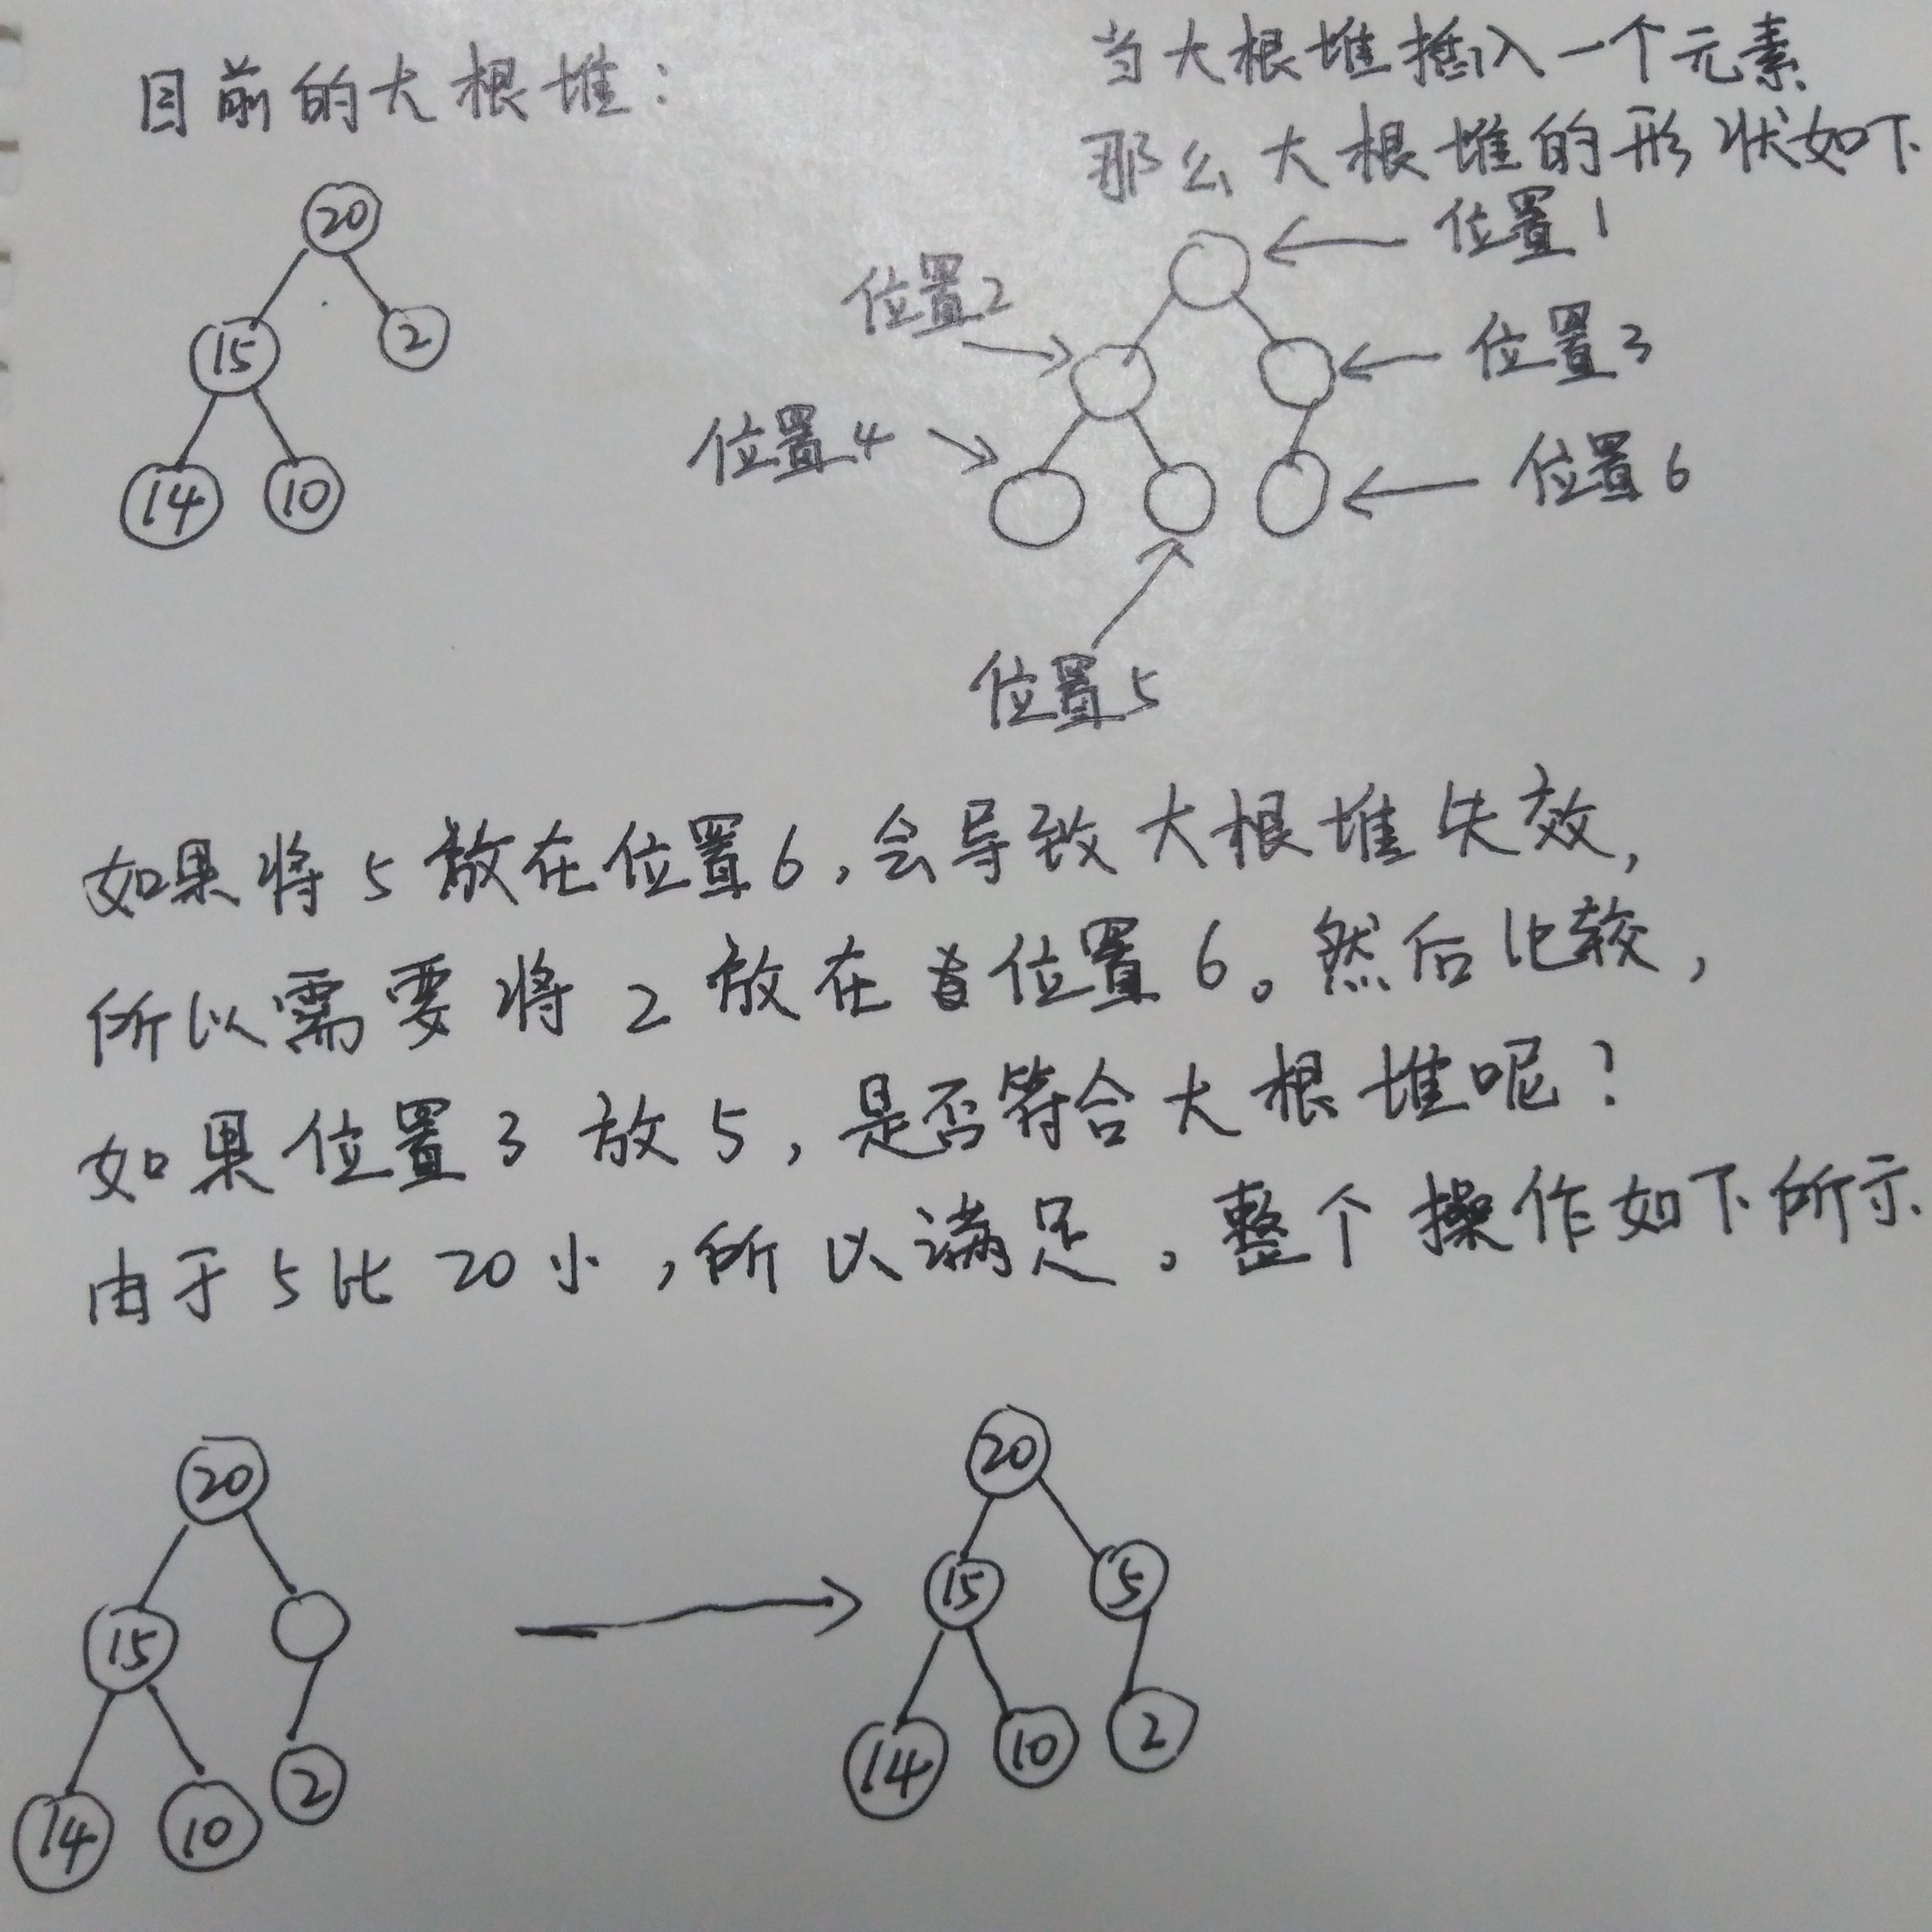 目前的大根堆:
20
15
2
14
10
当大根堆插入一个元素
那么大根堆的形状如下
位置1
位置2
位置3
位置4
位置6
位置5
如果将5放在位置6,会导致大根堆失效,
所以需要将2放在位置6。然后比较,
如果位置3放5,是否符合大根堆呢?
由于5比20小,所以满足。整个操作如下所示
20
15
14
10
2
20
15
5
14
10
2